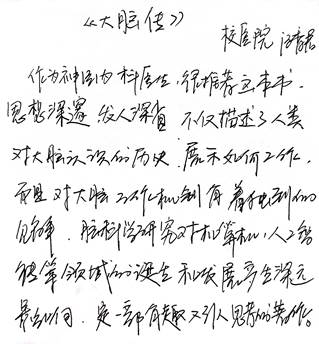 《大脑传》
校医院 汪春
作为神经内科医生,很推荐这本书.
思想深邃 发人深省 不仅描述了人类
对大脑认识的历史,展示如何工作,
而且对大脑工作机制有着独到的
见解.脑科学研究对计算机,人工智
能等领域的诞生和发展产生深远
影响.是一部有趣又引人思考的著作。